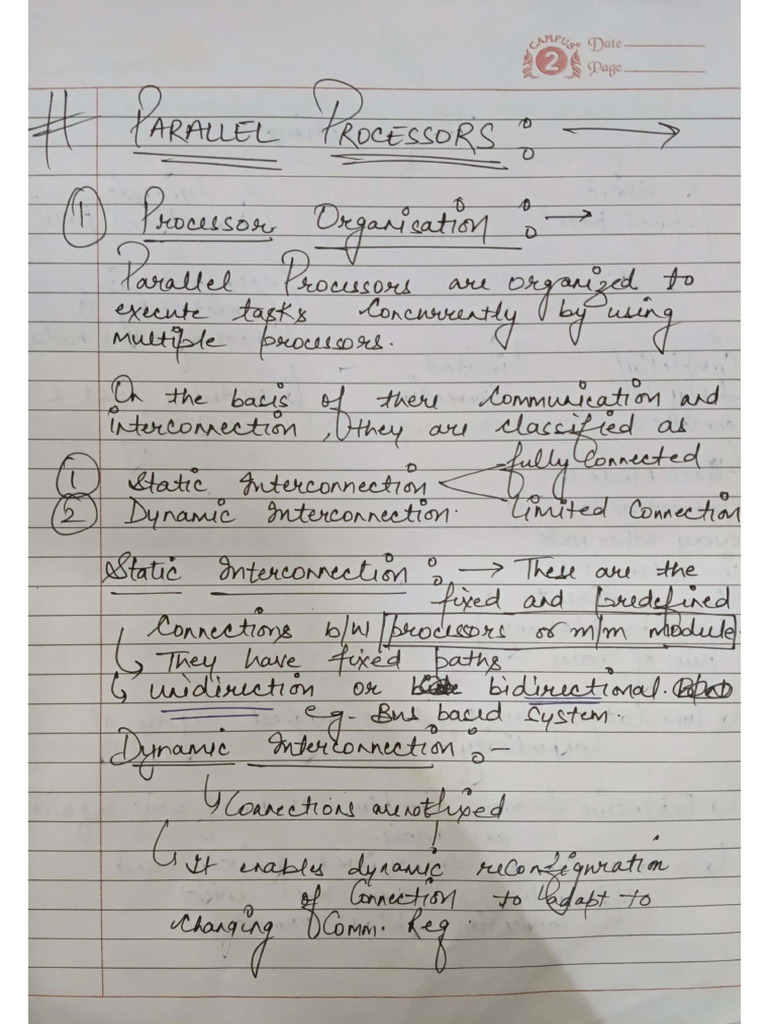 CAMPUS 2 Date
Page
# PARALLEL PROCESSORS : →
① Processor Organisation : →
Parallel Processors are organized to
execute tasks concurrently by using
multiple processors.
On the basis of there communication and
interconnection, they are classified as
fully connected
① Static Interconnection
② Dynamic Interconnection. Limited Connection
Static Interconnection : → These are the
fixed and predefined
Connections b/w processors or m/m module.
↳ They have fixed paths
↳ unidirection or bidirectional.
e.g - Bus based System.
Dynamic Interconnection : -
↳ Connections are not fixed
↳ It enables dynamic reconfiguration
of Connection to adapt to
changing Comm. Req.